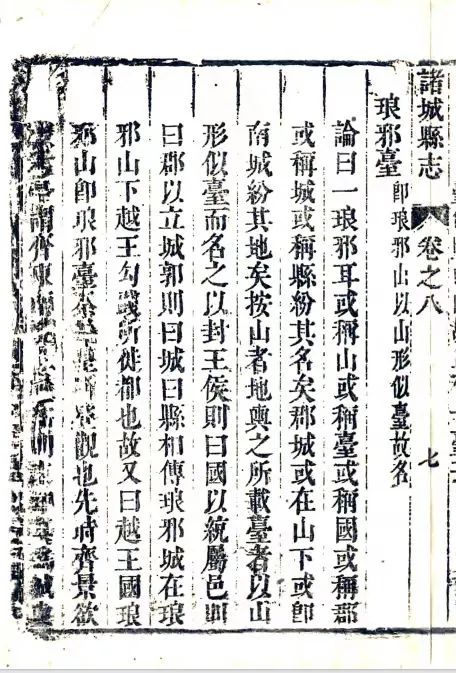 諸城縣志 卷之八 七
琅邪臺 卽琅邪山以山形似臺故名
論曰一琅邪耳或稱山或稱臺或稱國或稱郡
或稱城或稱縣紛其名矣郡城或在山下或卽
南城紛其地矣按山者地輿之所載臺者以山
形似臺而名之以封王侯則曰國以統屬邑則
曰郡以立城郭則曰城曰縣相傳琅邪城在琅
邪山下越王勾踐所徙都也故又曰越王國琅
邪山卽琅邪臺 觀也先時齊景欲